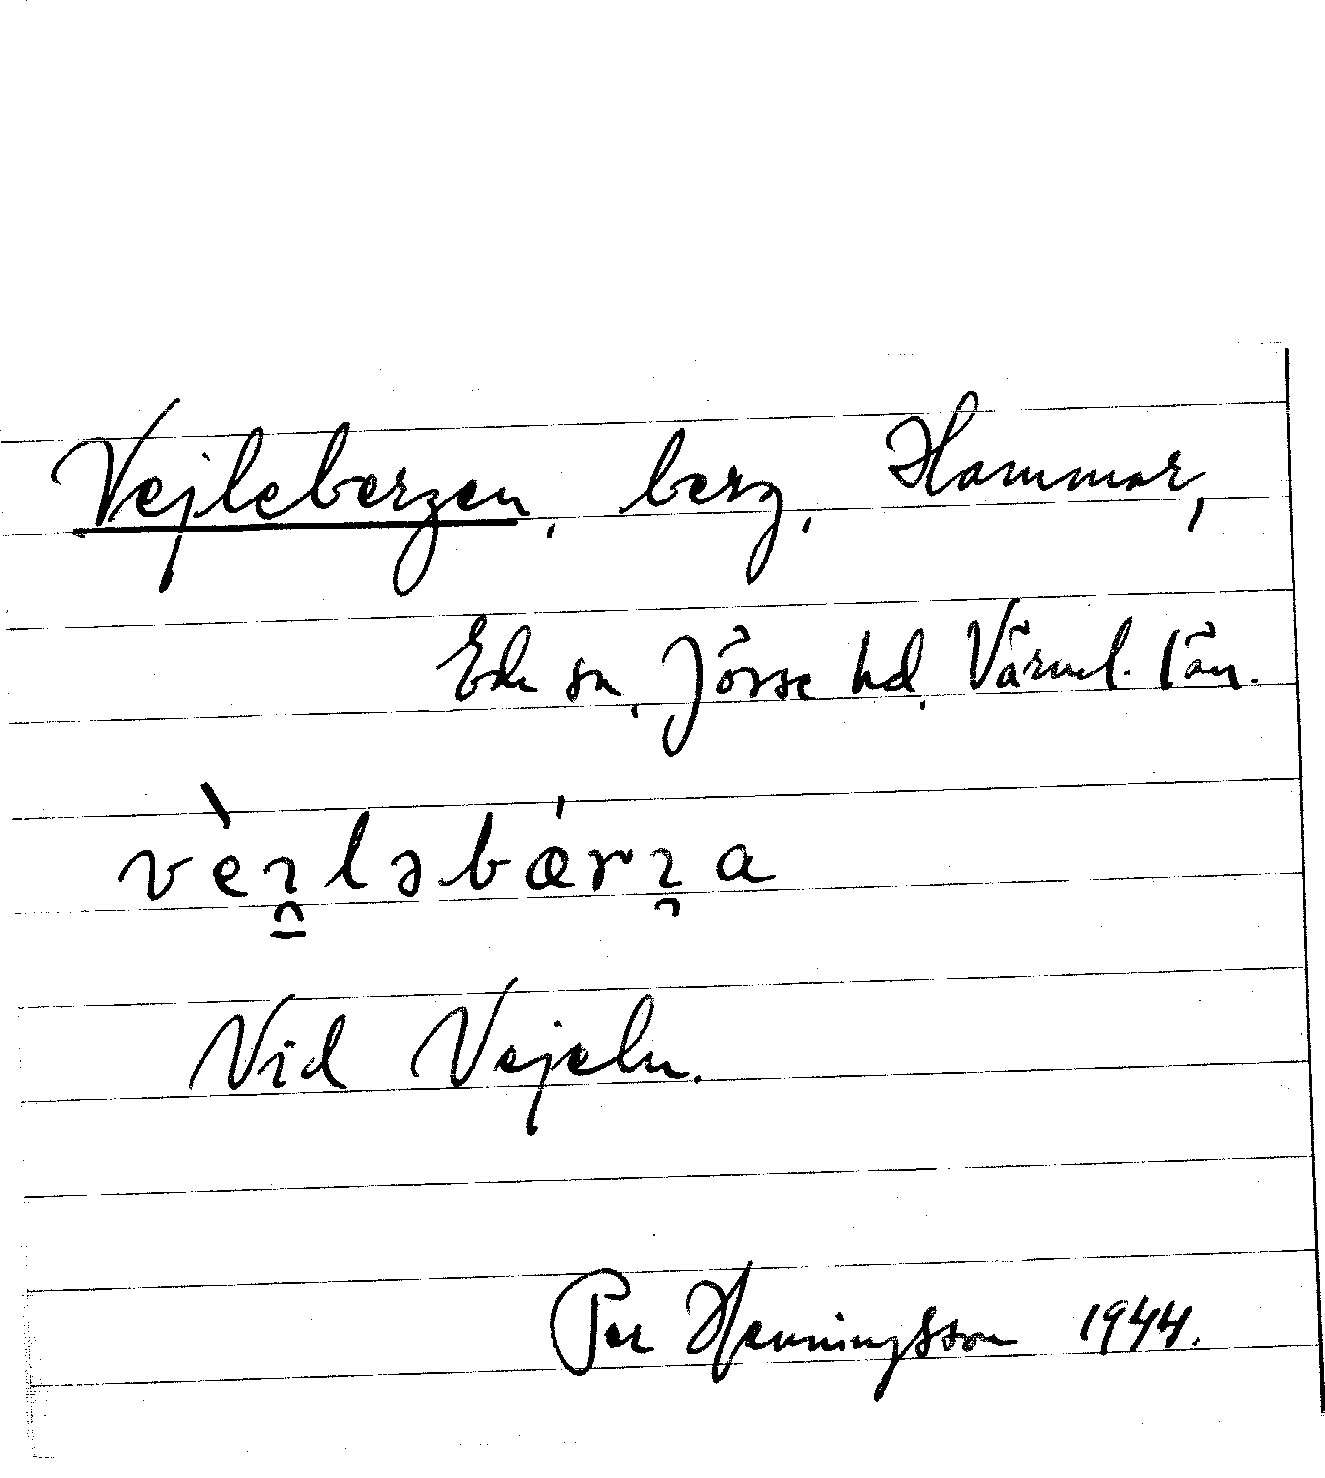 Vejlebergen, berg, Hammar,
Eda sn, Jösse hd, Värml. län.
vèi̯ləbærja
Vid Vejeln.
Per Henningsson 1944.